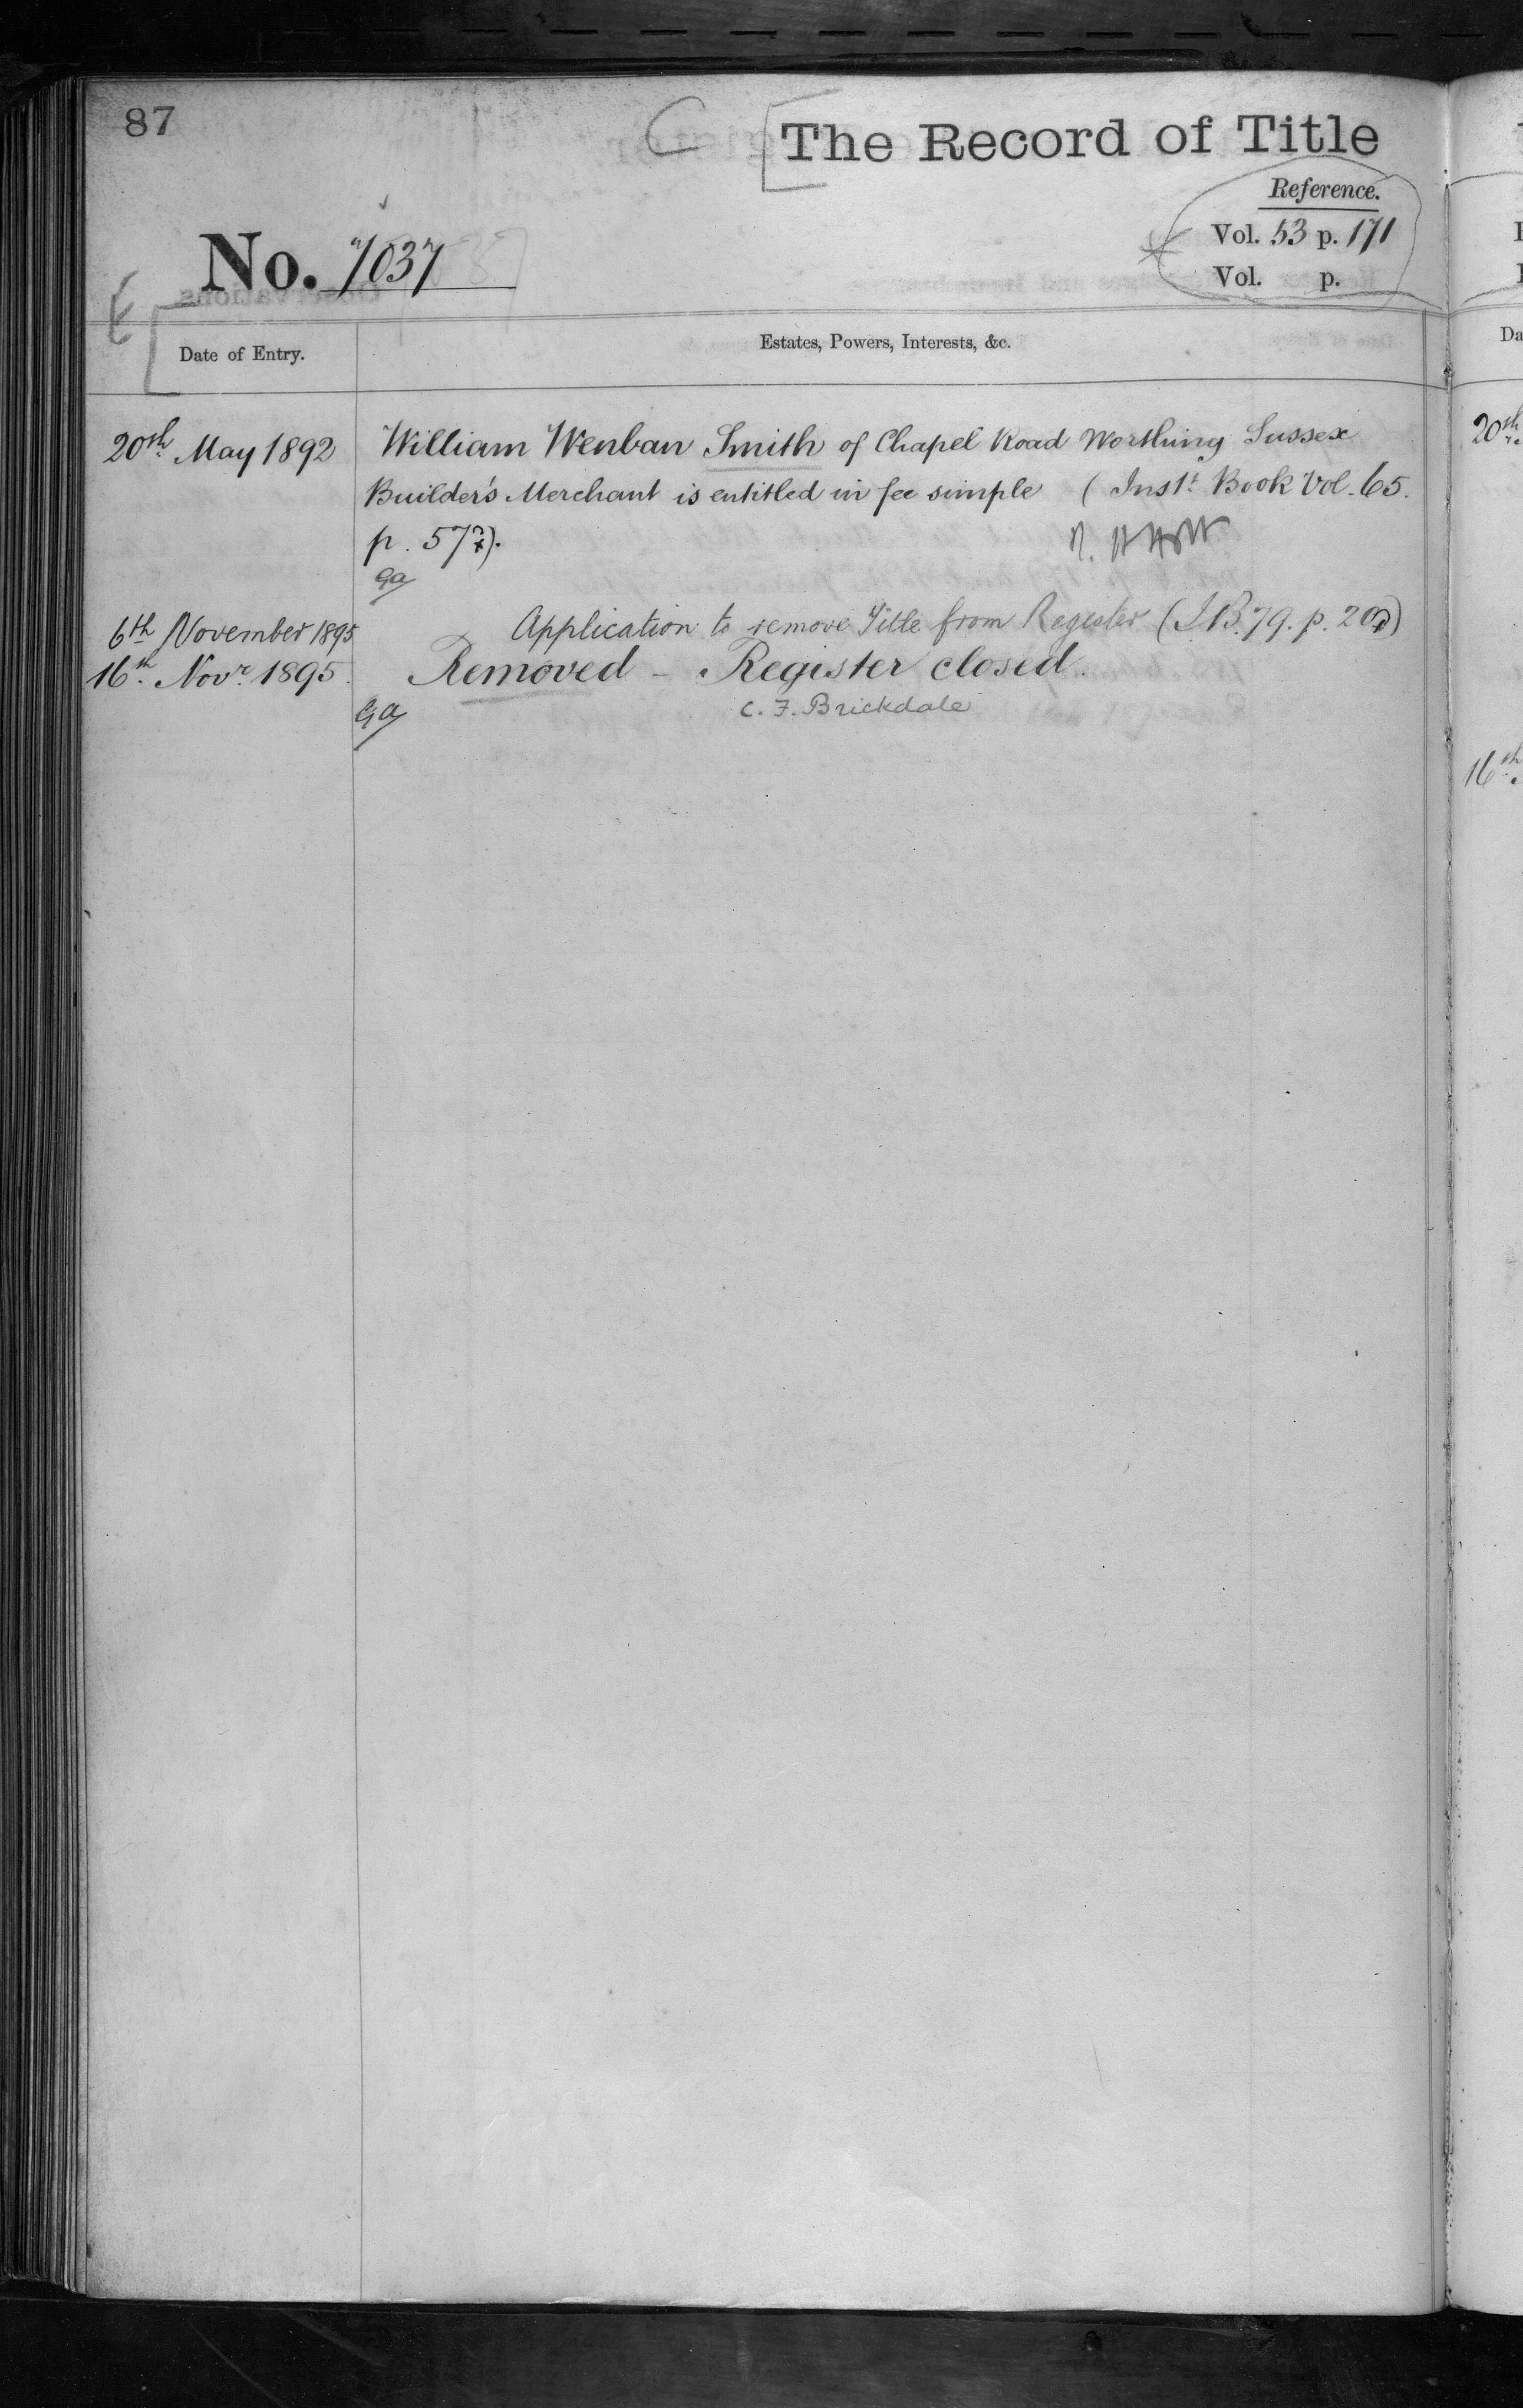 87
The Record of Title
Reference.
No. 7037
Vol. 53 p. 171
Vol. p.
Date of Entry.
Estates, Powers, Interests, &c.
20th May 1892
William Wenban Smith of Chapel Road Worthing Sussex
Builder's Merchant is entitled in fee simple (Inst. Book Vol. 65.
p. 57
Ga
6th November 1895
Application to remove Title from Register (I.B. 79. p. 20
16th Novr. 1895.
Removed - Register closed.
Ga
C. F. Brickdale
Da
20th
16th